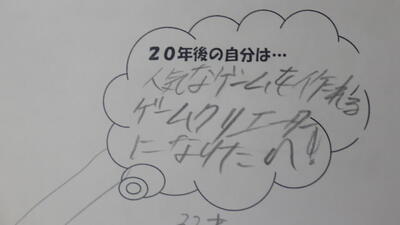 20年後の自分は…
人気なゲームを作れる
ゲームクリエーター
になりたい!